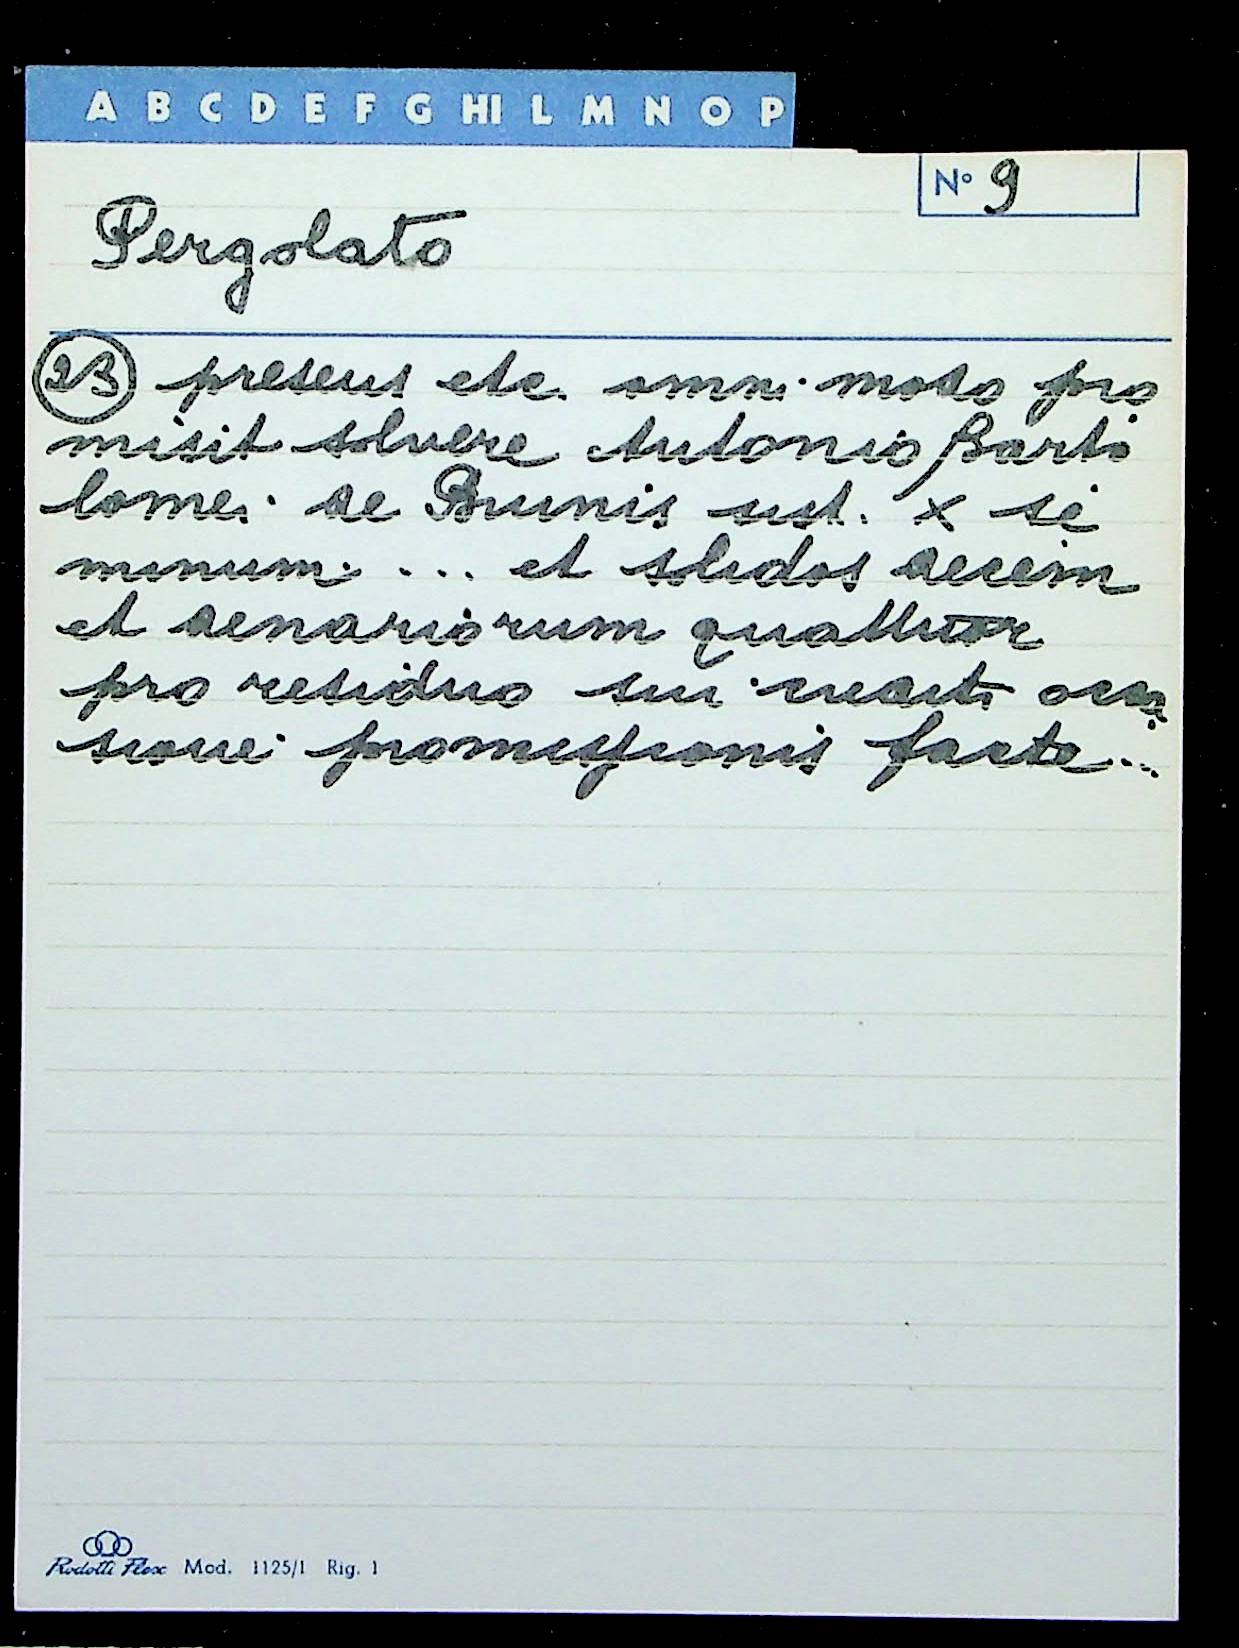 A B C D E F G HI L M N O P
Nº 9
Pergolato
23 presens etc. omni modo pro
misit solvere Antonio Barto
lomei de Brunis ust. x se
minum ... et solidos decem
et denariorum quattuor
pro residuo sui
sione promissionis facte...
Prodotti Flex Mod. 1125/1 Rig. 1